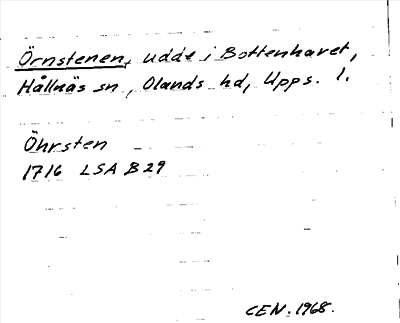 Örnstenen, udde i Bottenhavet,
Hållnäs sn, Olands hd, Upps. l.
Öhrsten
1716 LSA B29
CEN. 1968.